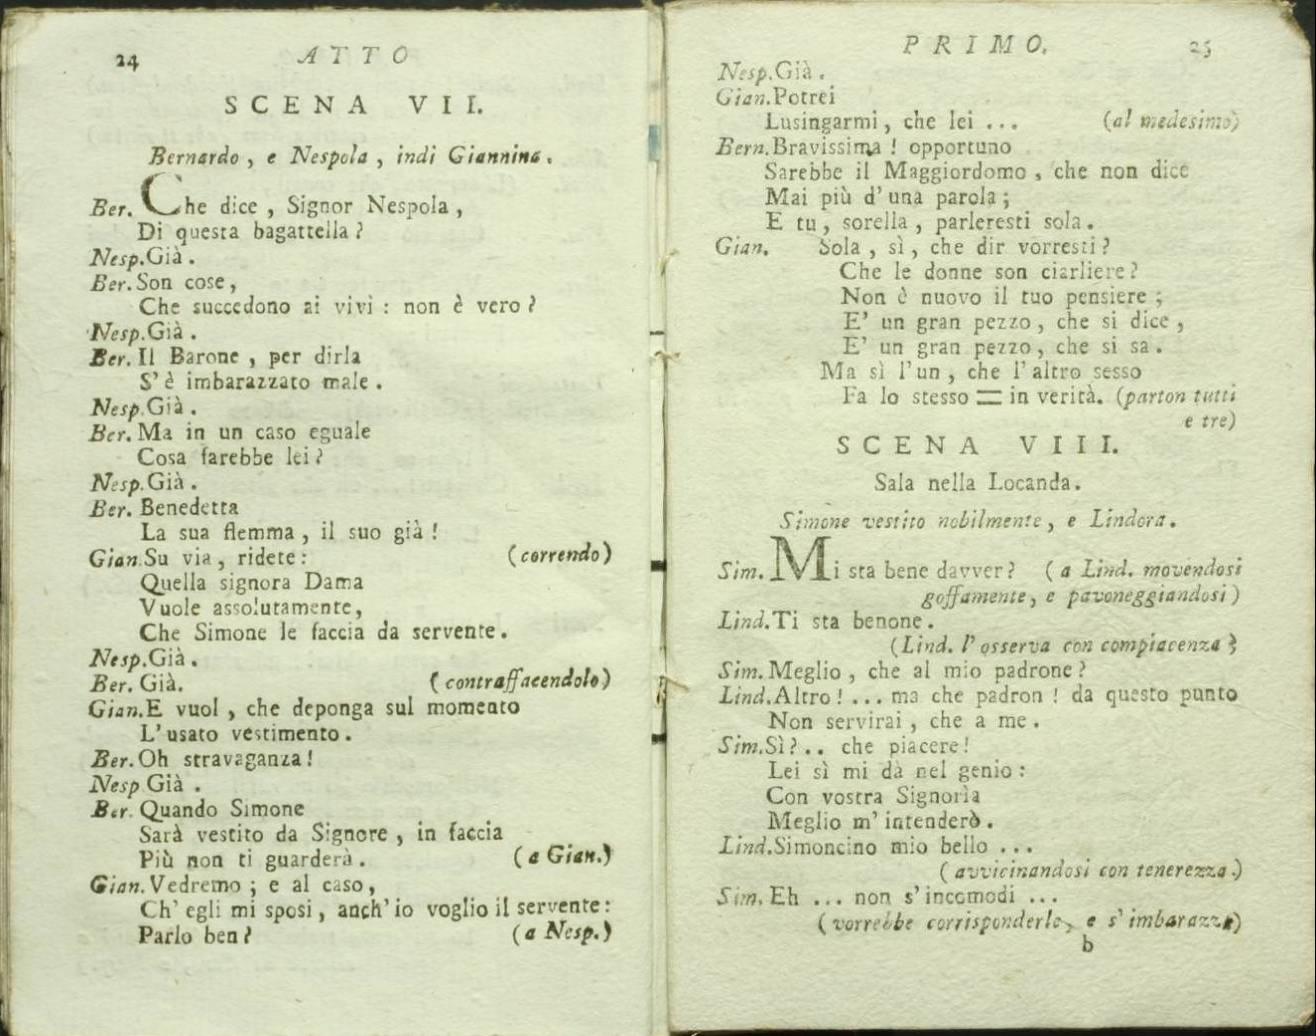 24 ATTO
SCENA VII.
Bernardo, e Nespola, indi Giannina.
Ber. Che dice, Signor Nespola,
Di questa bagattella?
Nesp. Già.
Ber. Son cose,
Che succedono ai vivi: non è vero?
Nesp. Già.
Ber. Il Barone, per dirla
S'è imbarazzato male.
Nesp. Già.
Ber. Ma in un caso eguale
Cosa farebbe lei?
Nesp. Già.
Ber. Benedetta
La sua flemma, il suo già!
Gian. Su via, ridete: (correndo)
Quella signora Dama
Vuole assolutamente,
Che Simone le faccia da servente.
Nesp. Già.
Ber. Già. (contraffacendolo)
Gian. E vuol, che deponga sul momento
L'usato vestimento.
Ber. Oh stravaganza!
Nesp Già.
Ber. Quando Simone
Sarà vestito da Signore, in faccia
Più non ti guarderà. (a Gian.)
Gian. Vedremo; e al caso,
Ch'egli mi sposi, anch'io voglio il servente:
Parlo ben? (a Nesp.)
PRIMO. 25
Nesp. Già.
Gian. Potrei
Lusingarmi, che lei ... (al medesimo)
Bern. Bravissima! opportuno
Sarebbe il Maggiordomo, che non dice
Mai più d'una parola;
E tu, sorella, parleresti sola.
Gian. Sola, sì, che dir vorresti?
Che le donne son ciarliere?
Non è nuovo il tuo pensiere;
E' un gran pezzo, che si dice,
E' un gran pezzo, che si sa.
Ma sì l'un, che l'altro sesso
Fa lo stesso = in verità. (parton tutti
e tre)
SCENA VIII.
Sala nella Locanda.
Simone vestito nobilmente, e Lindora.
Sim. Mi sta bene davver? (a Lind. movendosi
goffamente, e pavoneggiandosi)
Lind. Ti sta benone.
(Lind. l'osserva con compiacenza)
Sim. Meglio, che al mio padrone?
Lind. Altro! ... ma che padron! da questo punto
Non servirai, che a me.
Sim. Sì?.. che piacere!
Lei sì mi dà nel genio:
Con vostra Signorìa
Meglio m'intenderò.
Lind. Simoncino mio bello ...
(avvicinandosi con tenerezza.)
Sim. Eh ... non s'incomodi ...
(vorrebbe corrisponderle, e s'imbarazza)
b